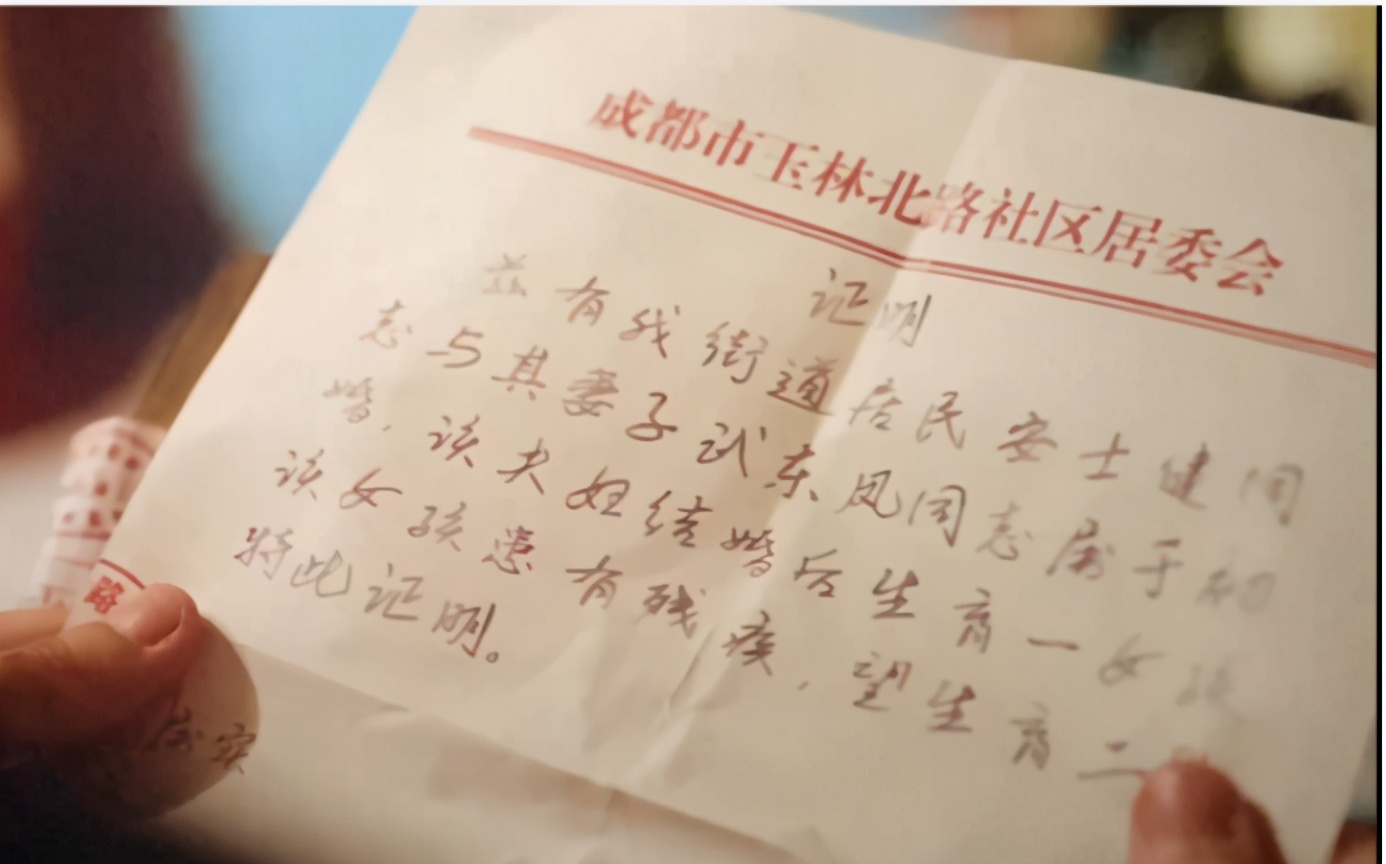 成都市玉林北路社区居委会
证明
兹有我街道居民安士健同
志与其妻子武东凤同志属于初
婚,该夫妇结婚后生育一女孩
该女孩患有残疾,望生育二
特此证明。
路
属实